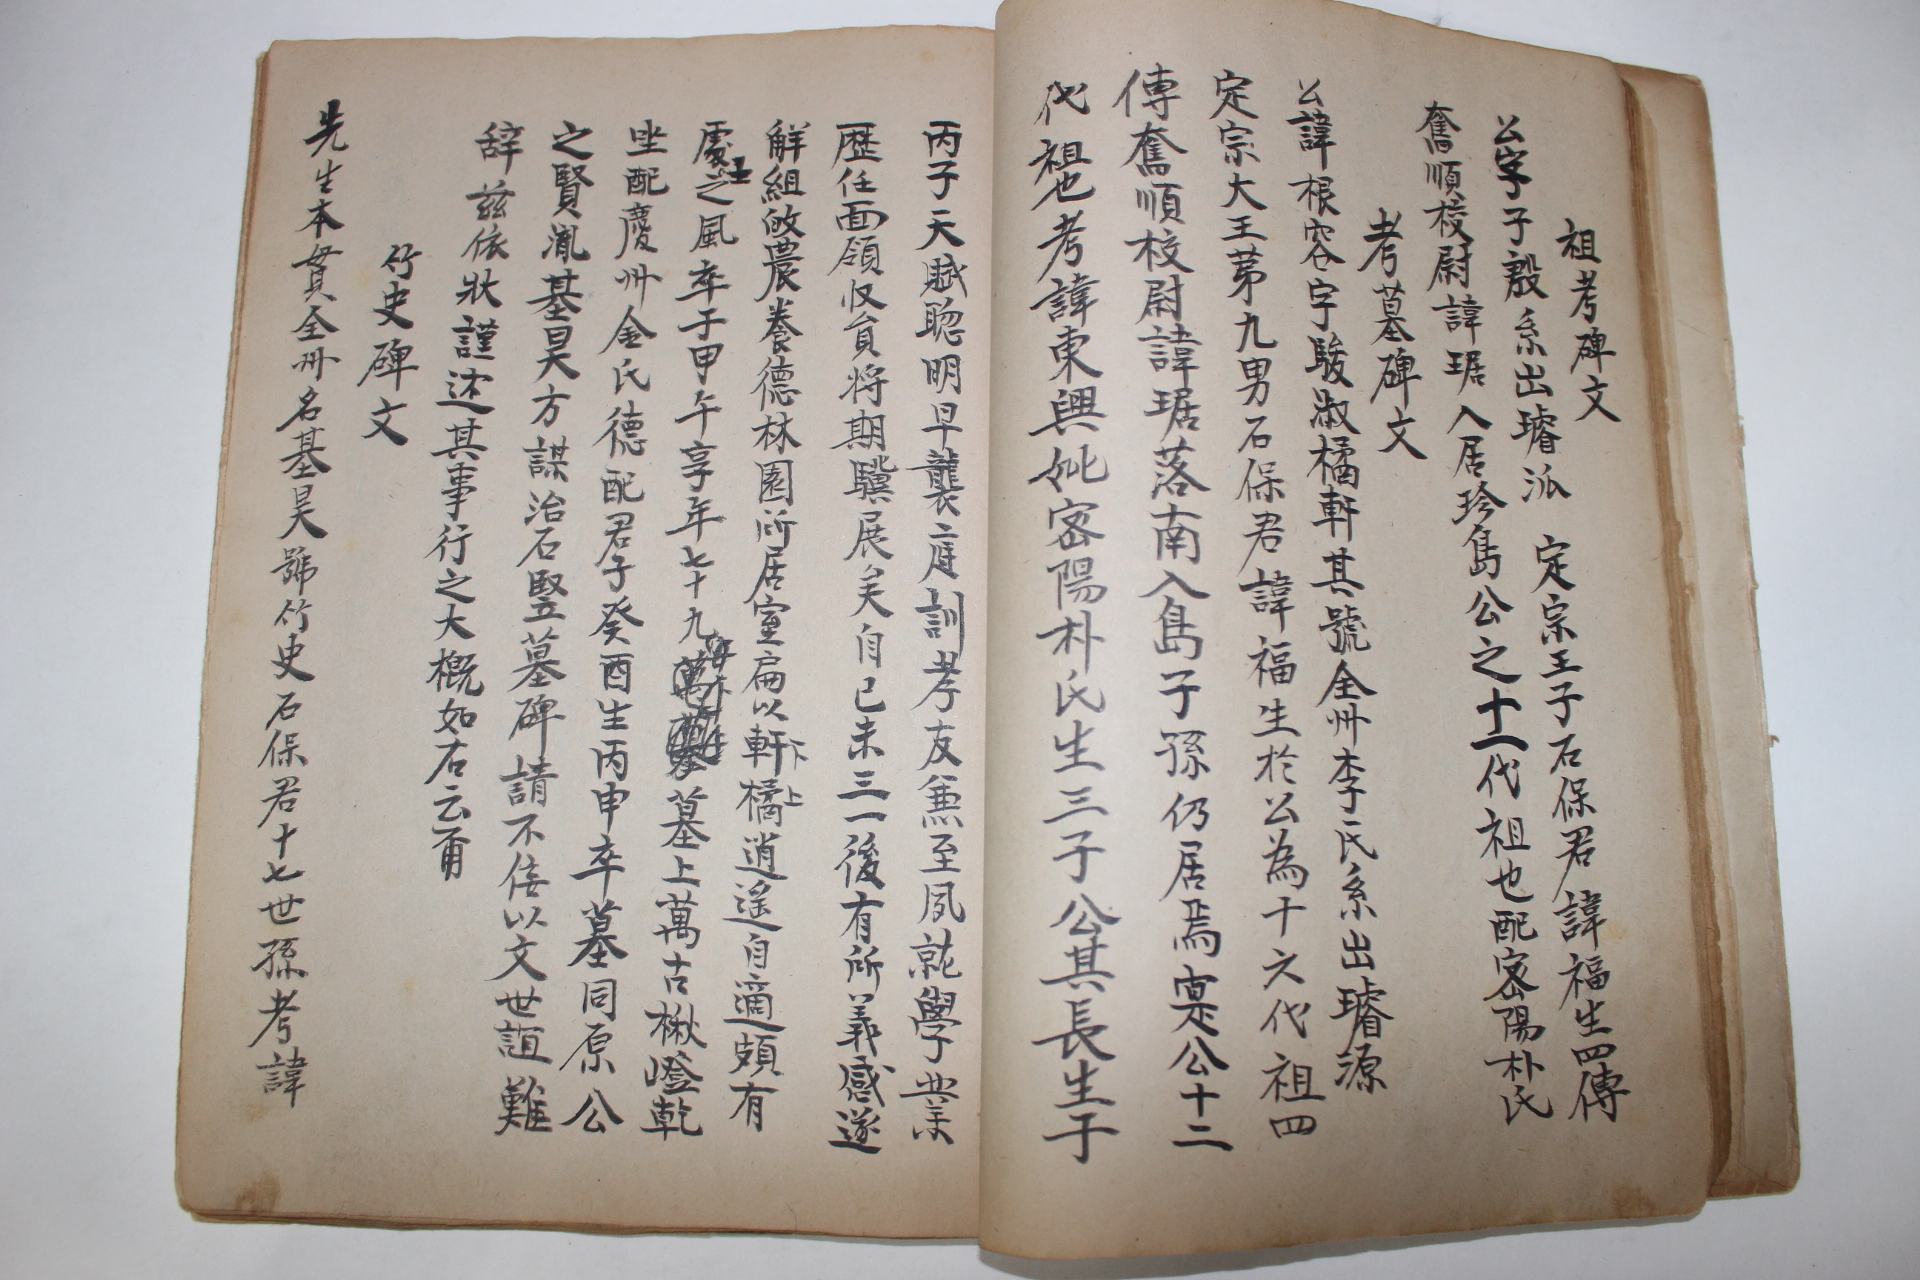 祖考碑文
公字子殷系出璿派 定宗王子石保君諱福生四傳
奮順校尉諱琚入居珍島公之十一代祖也配密陽朴氏
考墓碑文
公諱根容字駿淑橘軒其號全州李氏系出璿源
定宗大王第九男石保君諱福生於公為十六代祖四
傳奮順校尉諱琚落南入島子孫仍居焉寔公十二
代祖也考諱東興妣密陽朴氏生三子公其長生于
丙子天賦聰明早襲庭訓孝友兼至夙就學業
歷任面領收負將期驥展矣自己未三一後有所義感遂
解組敀農養德林園所居室扁以軒下橘上逍遙自適頗有
處士之風卒于甲午享年七十九墓上萬古楸嶝乾
坐配慶州金氏德配君子癸酉生丙申卒墓同原公
之賢胤基昊方謀治石竪墓碑請不佞以文世誼難
辞玆依狀謹述其事行之大槪如右云爾
竹史碑文
先生本貫全州名基昊號竹史石保君十七世孫考諱